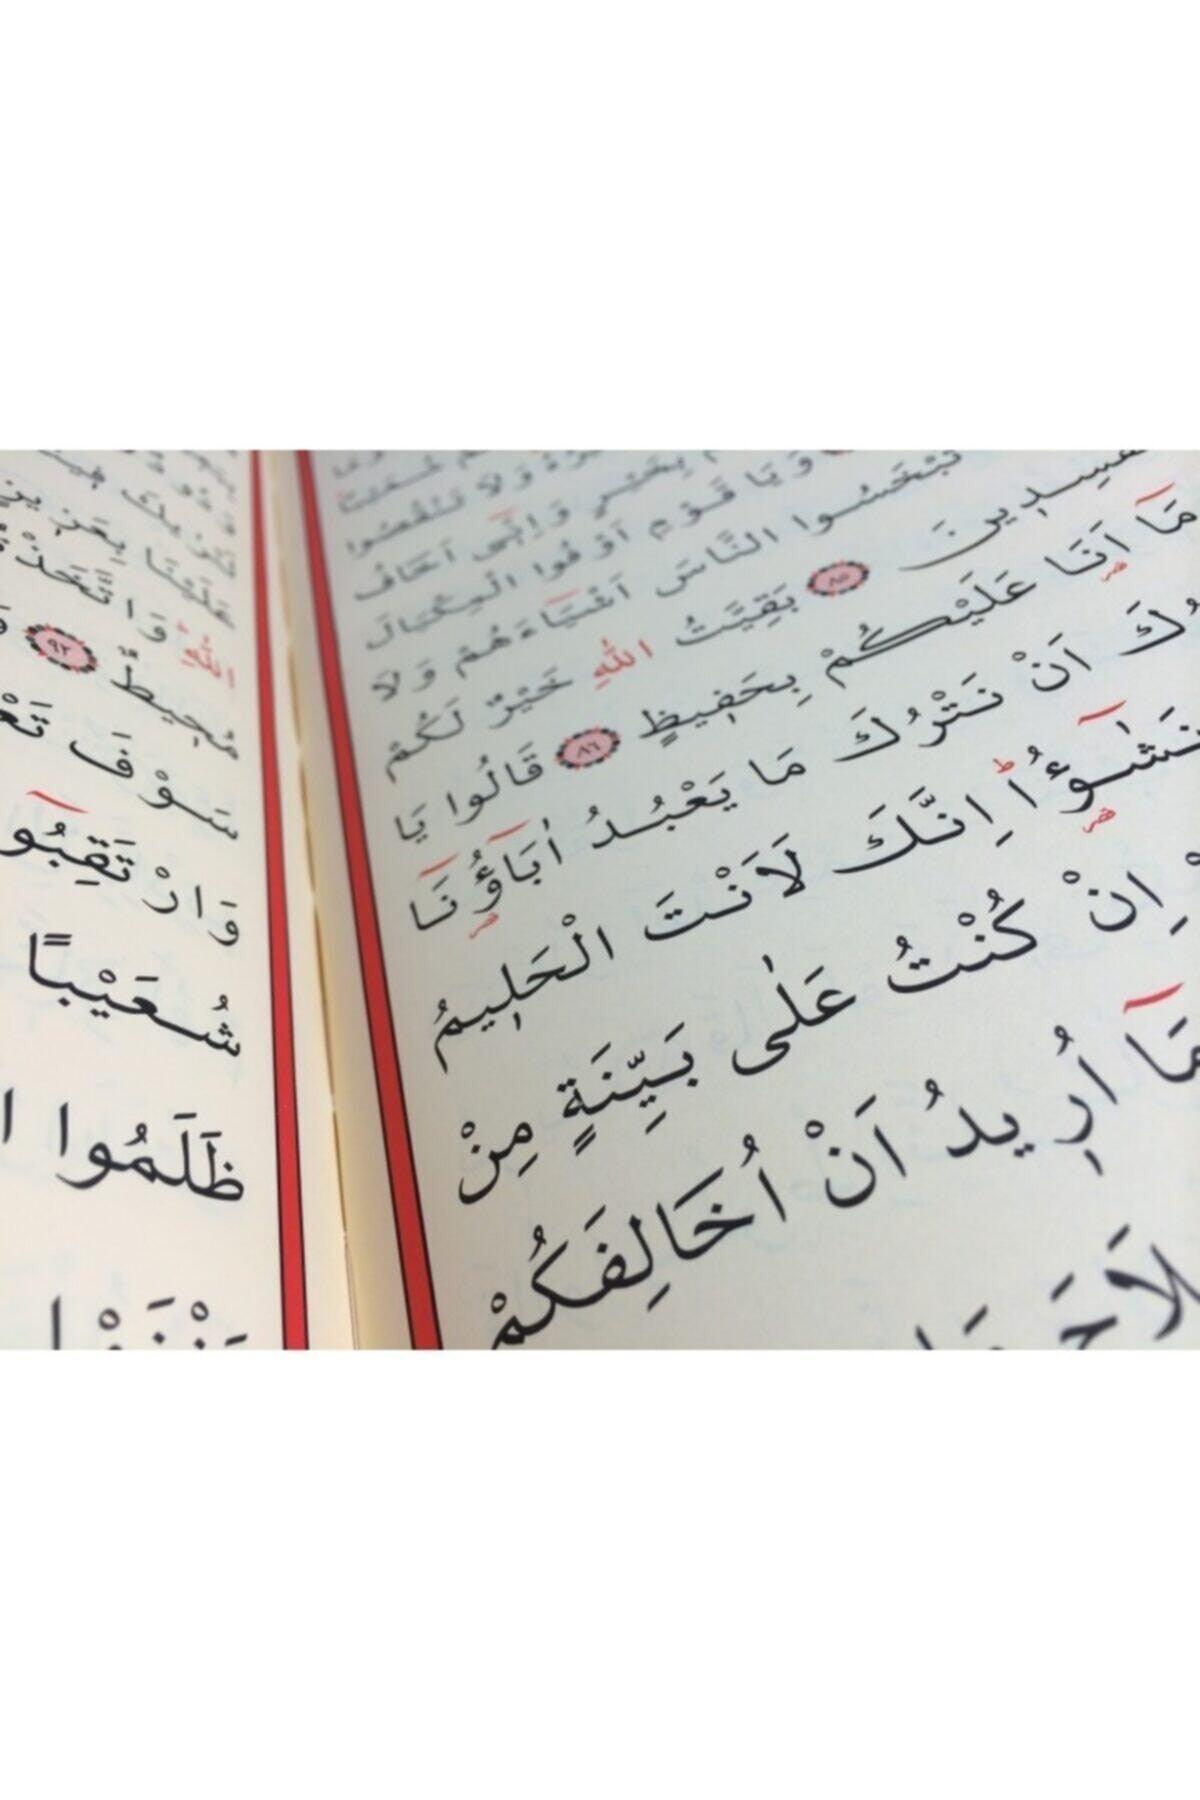 وَلَا تَنْقُصُوا
بِخَيْرٍ وَاِنّٓى اَخَافُ
وَيَا قَوْمِ اَوْفُوا الْمِكْيَالَ
تَبْخَسُوا النَّاسَ اَشْيَٓاءَهُمْ وَلَا
مُفْسِدِينَ ﴿٨٥﴾ بَقِيَّتُ اللّٰهِ خَيْرٌ لَكُمْ
مَٓا اَنَا۬ عَلَيْكُمْ بِحَفِيظٍ ﴿٨٦﴾ قَالُوا يَا
ـرُكَ اَنْ نَتْرُكَ مَا يَعْبُدُ اٰبَٓاؤُ۬نَٓا
نَشٰٓـؤُ۬ا اِنَّكَ لَاَنْتَ الْحَلِيمُ
اِنْ كُنْتُ عَلٰى بَيِّنَةٍ مِنْ
مَٓا اُرِيدُ اَنْ اُخَالِفَكُمْ
عَلَيْنَا بِعَزِيزٍ
اللّٰهِ وَاتَّخَذْ
مُحِيطٌ ﴿٩٢﴾
سَوْفَ تَعْـ
وَارْتَقِبُٓو
شُعَيْبًا
ظَلَمُوا